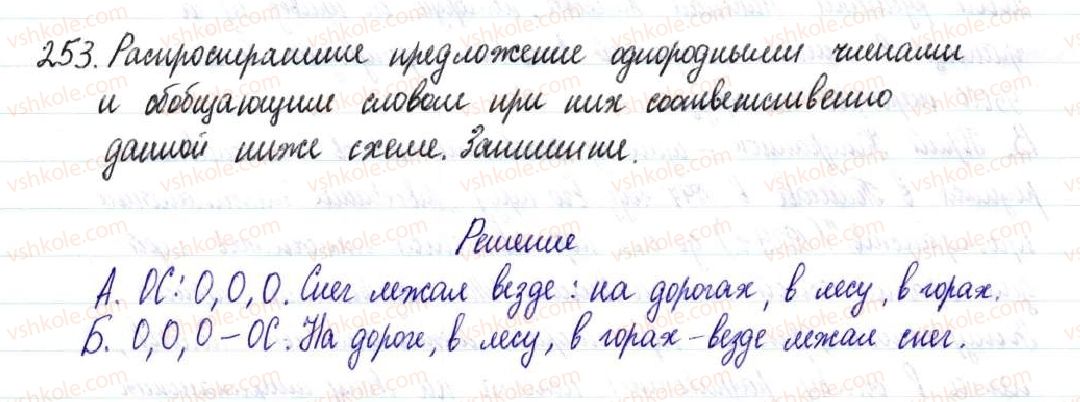 253. Распространите предложение однородными членами
и обобщающим словом при них соответственно
данной ниже схеме. Запишите.
Решение
А. ОС: О, О, О. Снег лежал везде: на дорогах, в лесу, в горах.
Б. О, О, О – ОС. На дороге, в лесу, в горах – везде лежал снег.